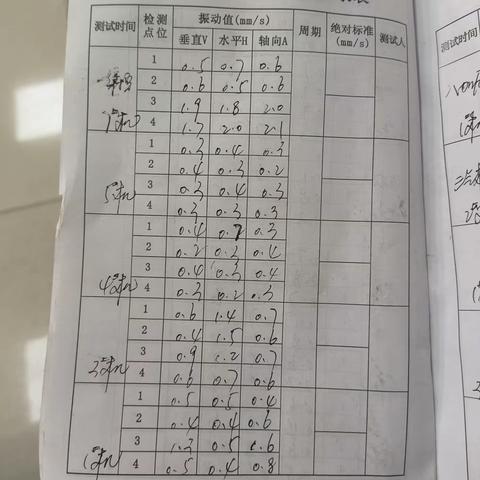 测试时间 检测点位 振动值(mm/s) 周期 绝对标准(mm/s) 测试人
垂直V 水平H 轴向A
1 0.5 0.7 0.6
2 0.6 0.5 0.6
3 1.9 1.8 2.0
4 1.7 2.0 2.1
1 0.3 0.4 0.3
2 0.4 0.3 0.2
3 0.3 0.4 0.3
4 0.3 0.3 0.3
1 0.4 0.2 0.3
2 0.2 0.3 0.4
3 0.4 0.3 0.4
4 0.3 0.2 0.3
1 0.6 1.4 0.7
2 0.4 1.5 0.6
3 0.9 1.2 0.7
4 0.6 0.7 0.6
1 0.5 0.5 0.4
2 0.4 0.4 0.6
3 1.3 0.5 1.6
4 0.5 0.4 0.8
测试时间